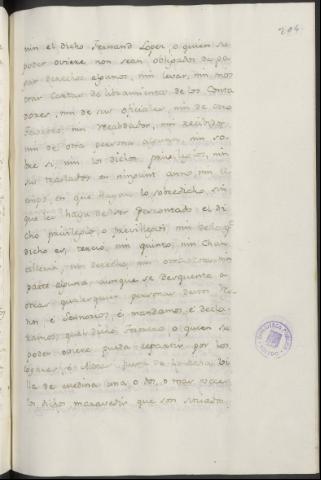 204
nin el dicho Fernand Lopez, o quien su
poder oviere non sean obligados de pa
gar derechos algunos, nin levar, nin mos
trar Cartas de libramientos de los Conta
dores, nin de sus oficiales, nin de otro
Tesorero, nin Recabdador, nin
nin de otra persona alguna, nin so
bre si, nin los dichos privilegios, nin
sus traslados en ningunt anno, nin
en que hayan lo sobredicho, sin
que les haya de ser descontado el di
cho privilegio, o previllegios nin de lo q
dicho es, tercio, nin quinto, nin Chan
celleria, nin derecho, nin otra cosa, nin
parte alguna, aunque se desquente a
otras qualesquier personas de mis Re
gnos, é Señorios, é mandamos, é decla
ramos, quel dicho Tesorero o quien su
poder oviere pueda repartir por los
logares, é
lla de medina una, o dos, o mas veces
los dichos maravedis que son situados